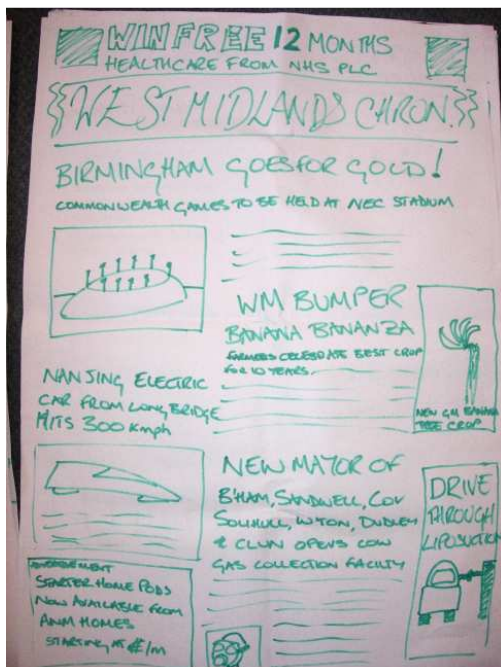 WIN FREE 12 MONTHS
HEALTHCARE FROM NHS PLC
WEST MIDLANDS CHRON.
BIRMINGHAM GOES FOR GOLD!
COMMONWEALTH GAMES TO BE HELD AT NEC STADIUM
WM BUMPER
BANANA BANANZA
FARMERS CELEBRATE BEST CROP
FOR 10 YEARS.
NEW GM BANANA
TREE CROP
NANJING ELECTRIC
CAR FROM LONGBRIDGE
HITS 300 Kmph
NEW MAYOR OF
B'HAM, SANDWELL, COV
SOLIHULL, W'TON, DUDLEY
& CLUN OPENS COW
GAS COLLECTION FACILITY
DRIVE
THROUGH
LIPOSUCTION
ADVERTISEMENT
STARTER HOME PODS
NOW AVAILABLE FROM
HOMES
STARTING AT